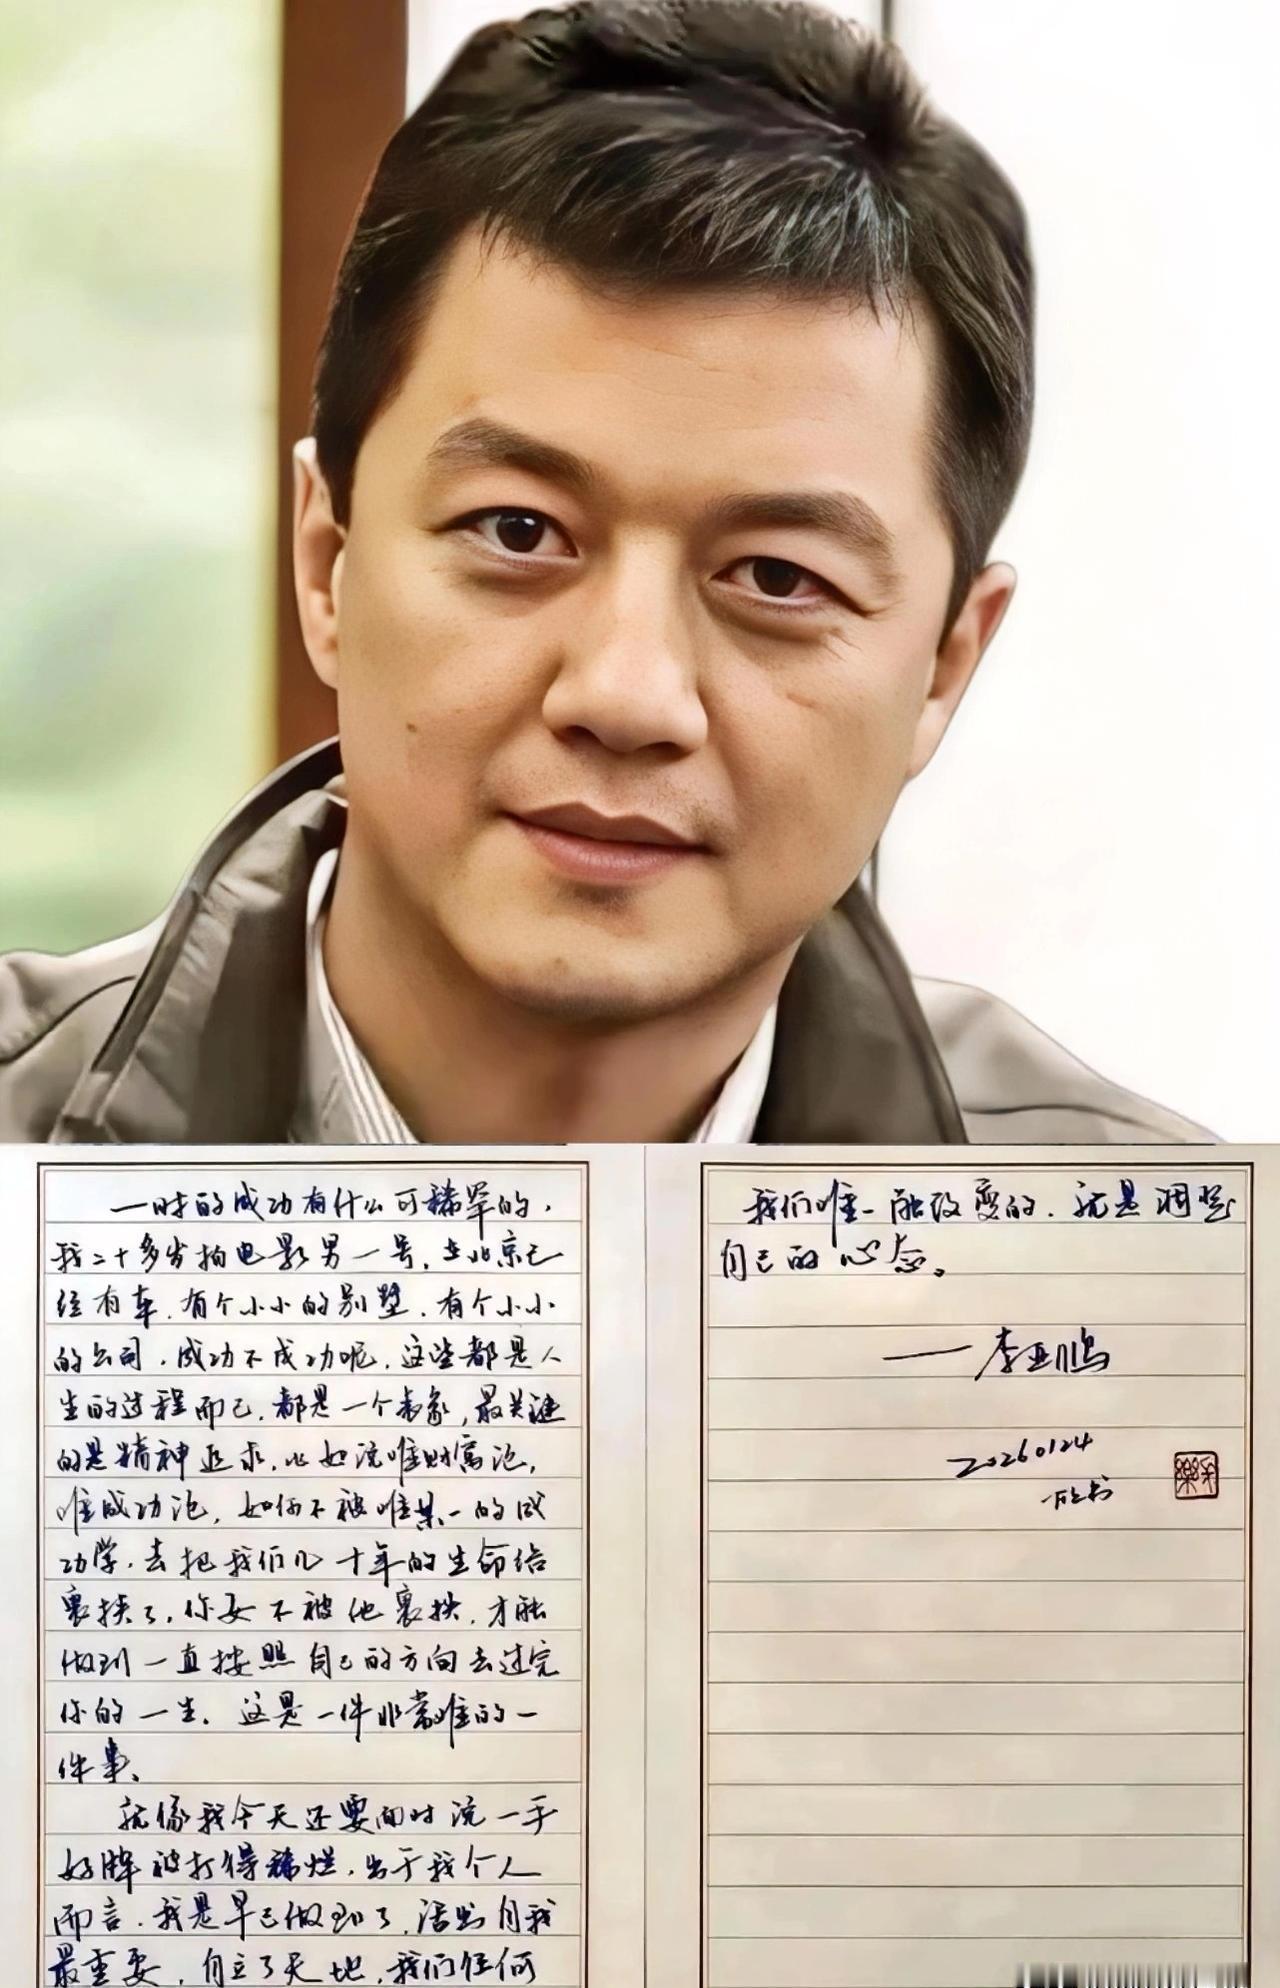 一时的成功有什么可稀罕的，
我二十多岁拍电影男一号，在北京已
经有车，有个小小的别墅，有个小小
的公司，成功不成功呢，这些都是人
生的过程而已，都是一个表象，最关键
的是精神追求，比如说唯财富论，
唯成功论，如何不被唯某一的成
功学，去把我们几十年的生命给
裹挟了，你要不被他裹挟，才能
做到一直按照自己的方向去过完
你的一生，这是一件非常难的一
件事、
就像我今天还要面对说一手
好牌被打得稀烂，出于我个人
而言，我是早已做到了，活出自我
最重要，自立于天地，我们任何
我们唯一能改变的，就是调整
自己的心态。
——李亚鹏
20260124